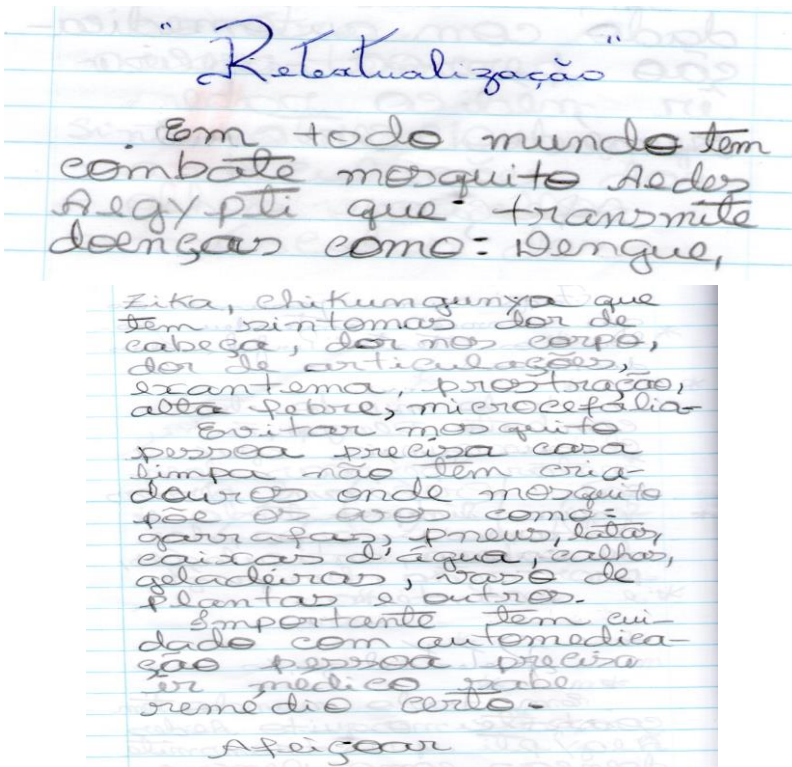 "Retextualização"
Em todo mundo tem
combate mosquito Aedes
Aegypti que transmite
doenças como: Dengue,
Zika, chikungunya que
tem sintomas dor de
cabeça, dor nos corpo,
dor de articulações,
exantema, prostração,
alta febre, microcefalia
Evitar mosquito
pessoa precisa casa
limpa não tem cria-
douros onde mosquito
põe os ovos como:
garrafas, pneus, latas,
caixas d'água, calhas,
geladeiras, vaso de
plantas e outros.
Importante tem cui-
dado com automedica-
ção pessoa precisa
ir médico sabe
remédio certo.
Afeiçoar